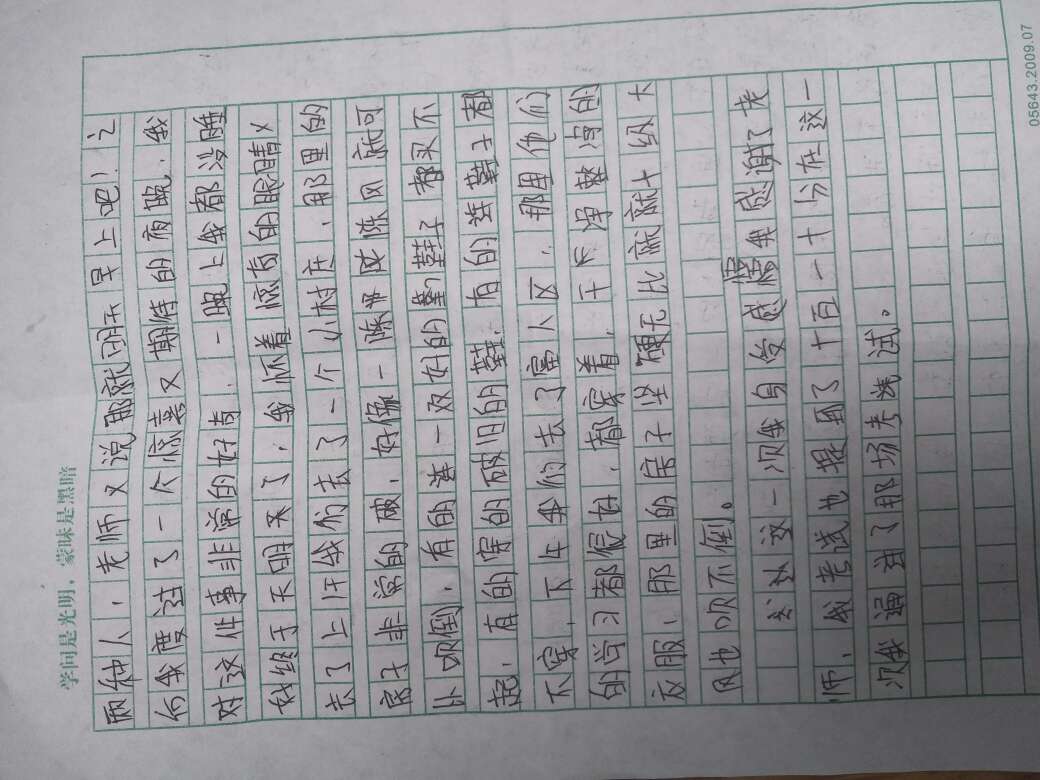 学问是光明，蒙昧是黑暗
两种人，老师又说那就明天早上吧！之
后我度过了一个惊喜又期待的夜晚，我
对这件事非常的好奇，一晚上我都没睡
好终于天明来了，我怀着惊奇的眼睛又
去了上午我们去了一个小村庄，那里的
房子非常的破，好像一阵风就可
以吹倒，有的一双好的鞋子都买不
起，有的穿的破旧的鞋，有的连鞋子都
不穿，下午我们去了富人区，那里他们
的学习都很好，都穿着，干干净整净的
衣服，那里的房子坚硬无比就就十级大
风也吹不倒。
这一次我自受感悟我感谢了老
师，我考试也提到了十百一十分在这一
次我通过了那场考试。
05643.2009.07